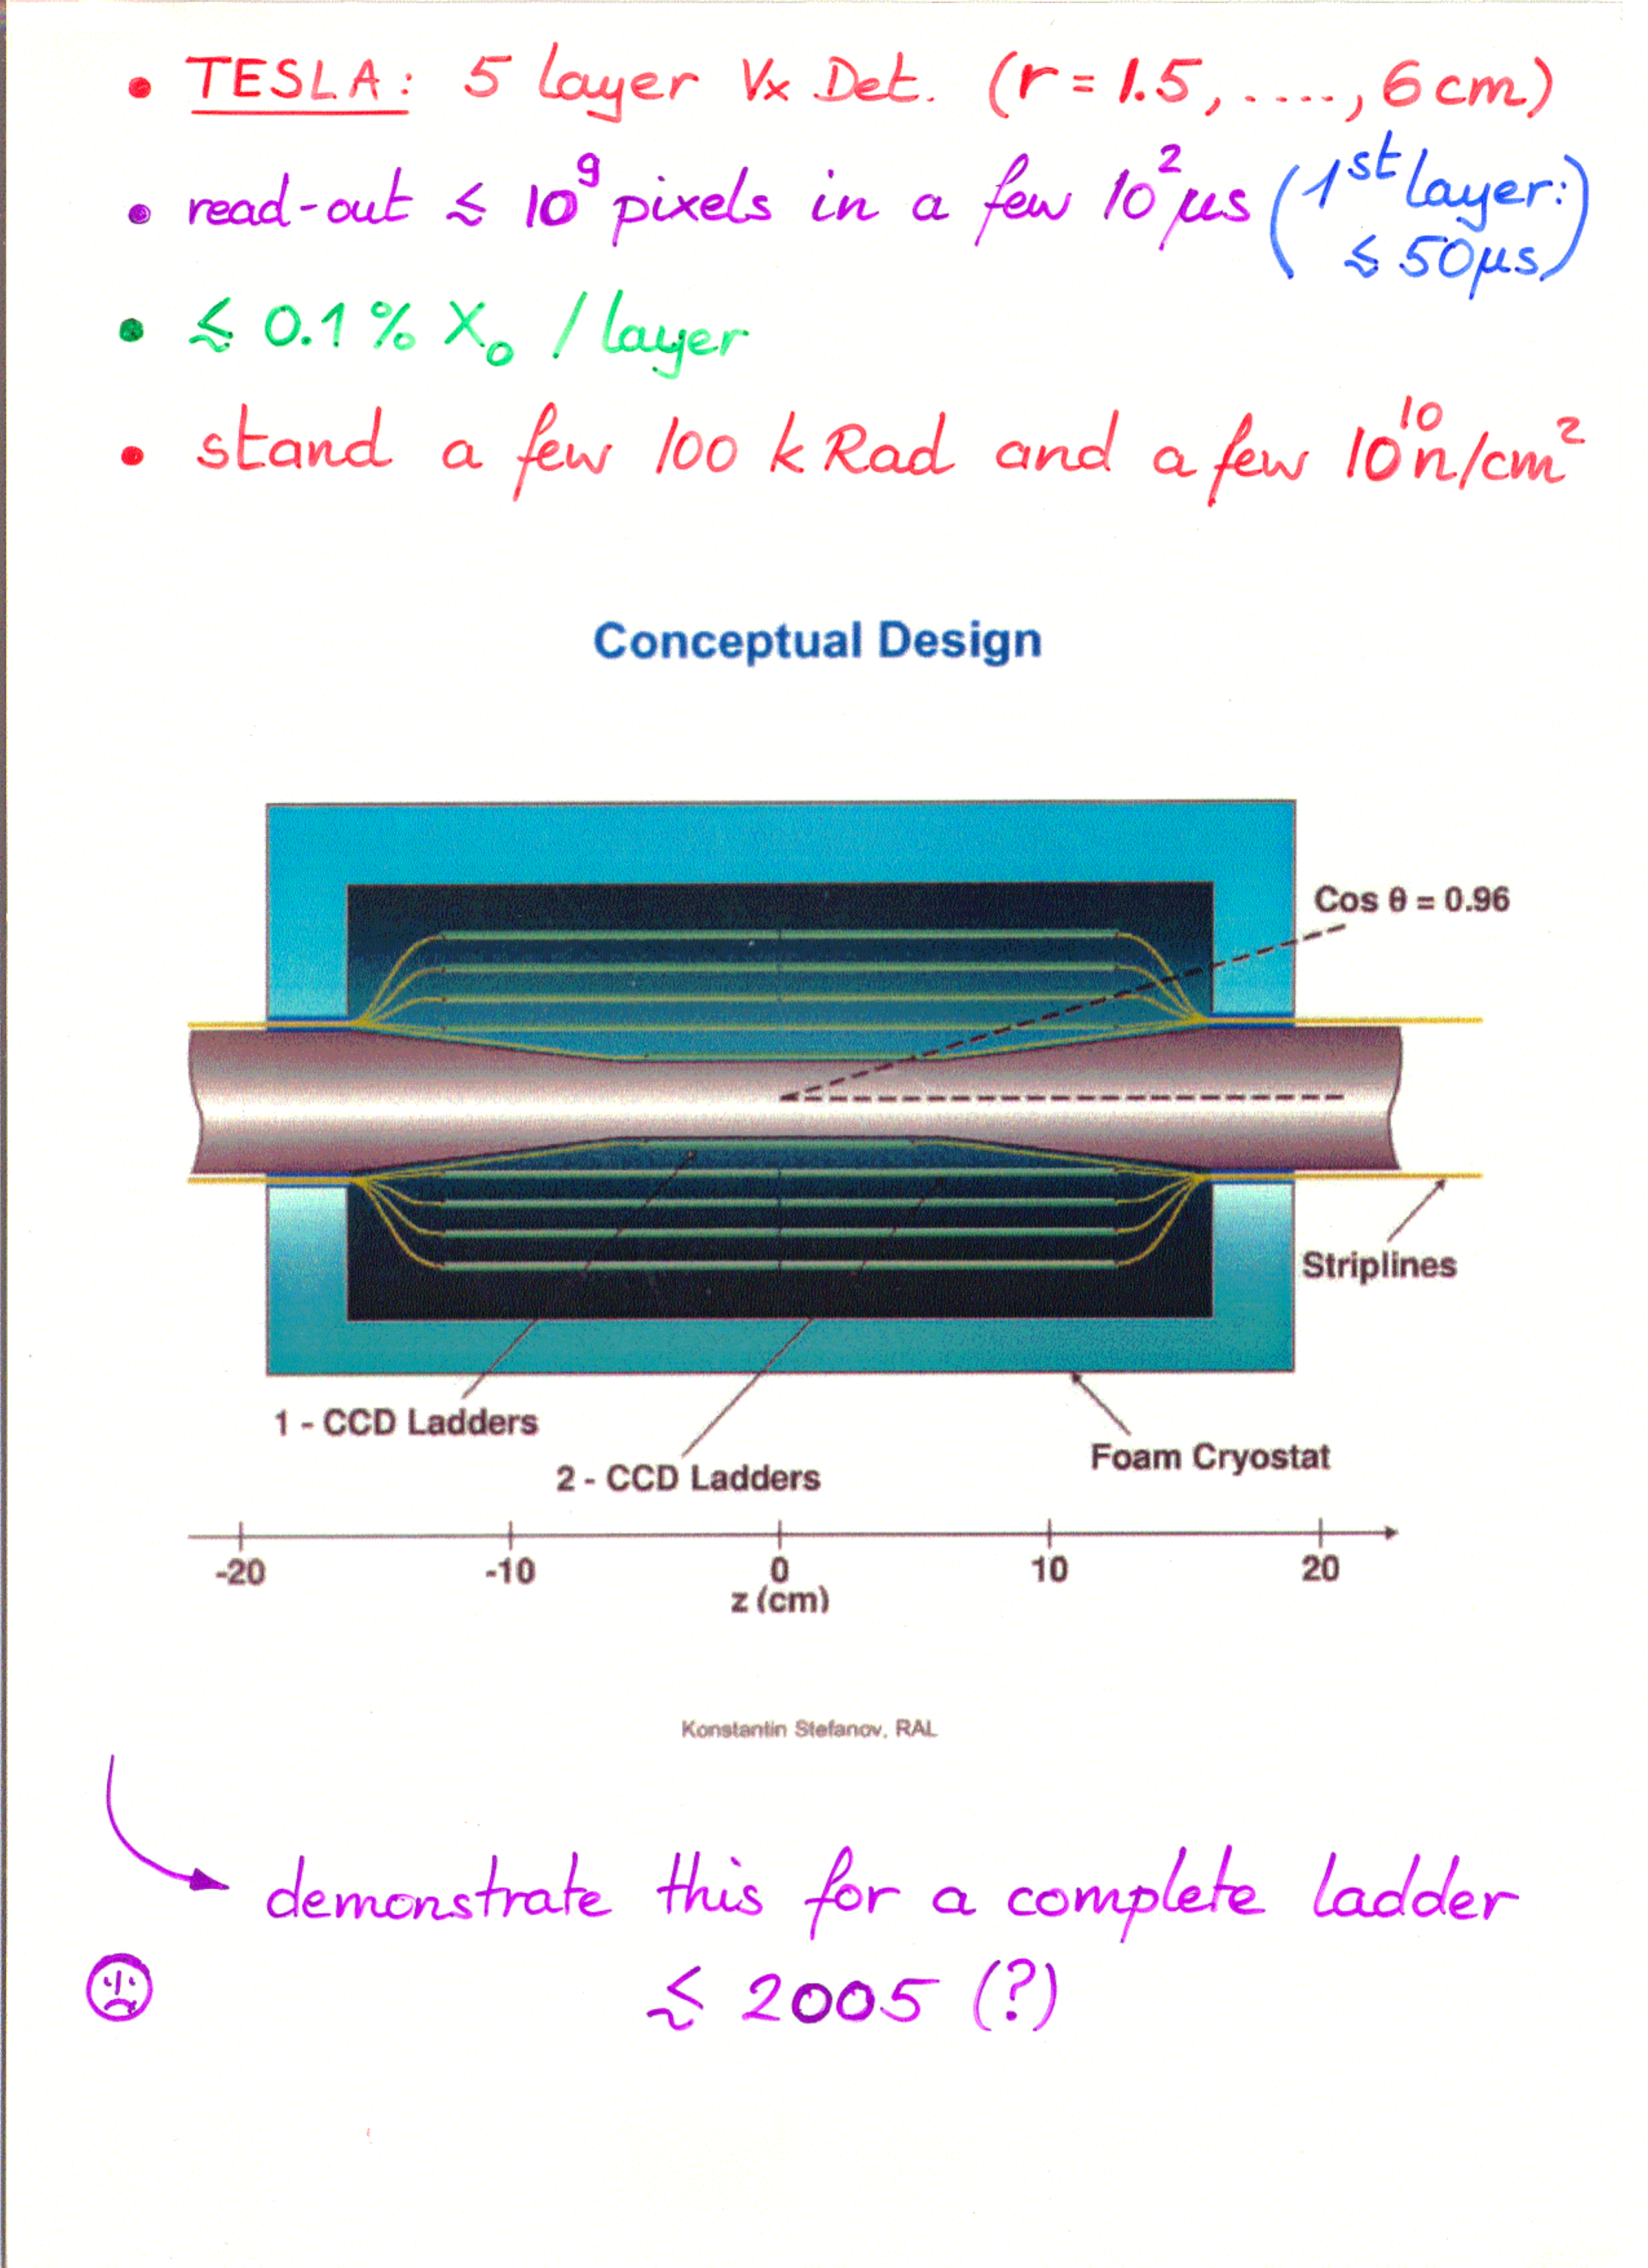 • TESLA: 5 layer Vx Det. (r = 1.5, ...., 6 cm)
• read-out ≲ 10⁹ pixels in a few 10² µs (1st layer:
≲ 50µs)
• ≲ 0.1 % X₀ / layer
• stand a few 100 kRad and a few 10¹⁰ n/cm²
Conceptual Design
Cos θ = 0.96
Striplines
1 - CCD Ladders
2 - CCD Ladders
Foam Cryostat
-20 -10 0 10 20
z (cm)
Konstantin Stefanov, RAL
demonstrate this for a complete ladder
≲ 2005 (?)